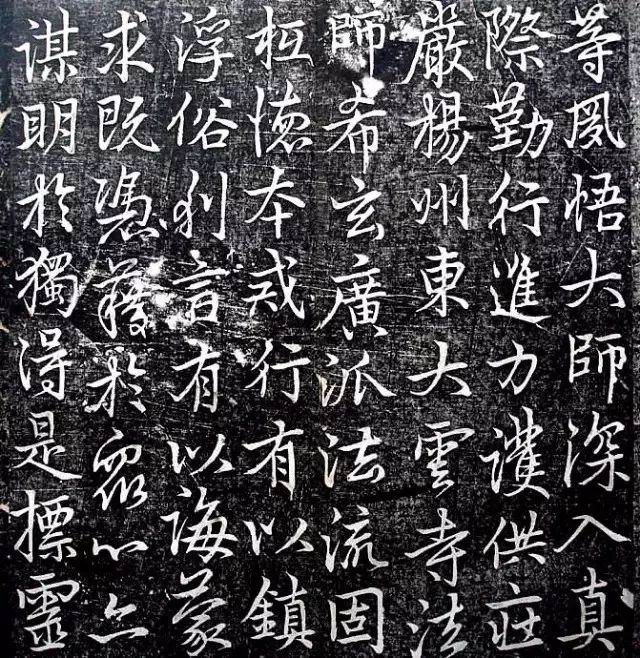 等夙悟大師深入真
際勤行進力護供莊
嚴楊州東大雲寺法
師希玄廣派法流固
柢德本戒行有以鎮
浮俗利言有以誨蒙
求既憑藉於眾心亦
謀明於獨得是標靈